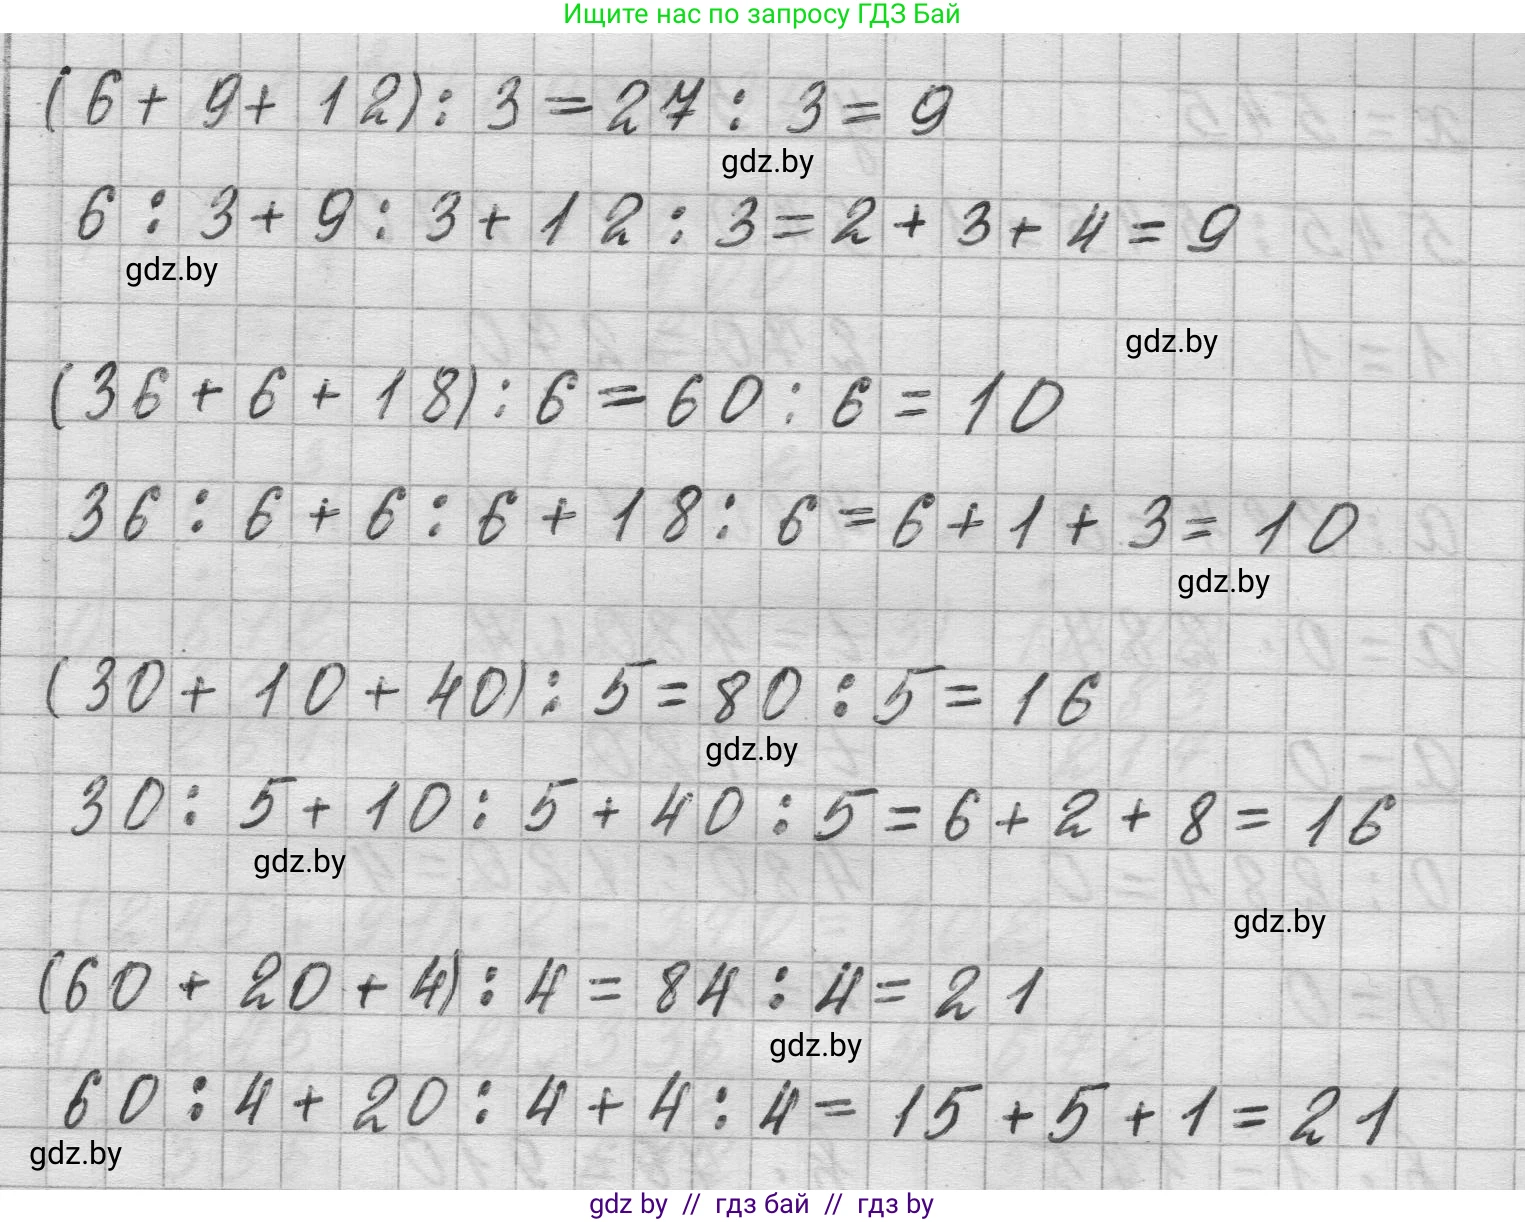 Ищите нас по запросу ГДЗ Бай
(6+9+12):3=27:3=9
gdz.by
6:3+9:3+12:3=2+3+4=9
gdz.by
gdz.by
(36+6+18):6=60:6=10
36:6+6:6+18:6=6+1+3=10
gdz.by
(30+10+40):5=80:5=16
gdz.by
30:5+10:5+40:5=6+2+8=16
gdz.by
gdz.by
(60+20+4):4=84:4=21
gdz.by
60:4+20:4+4:4=15+5+1=21
gdz.by
gdz by // гдз бай // гдз by